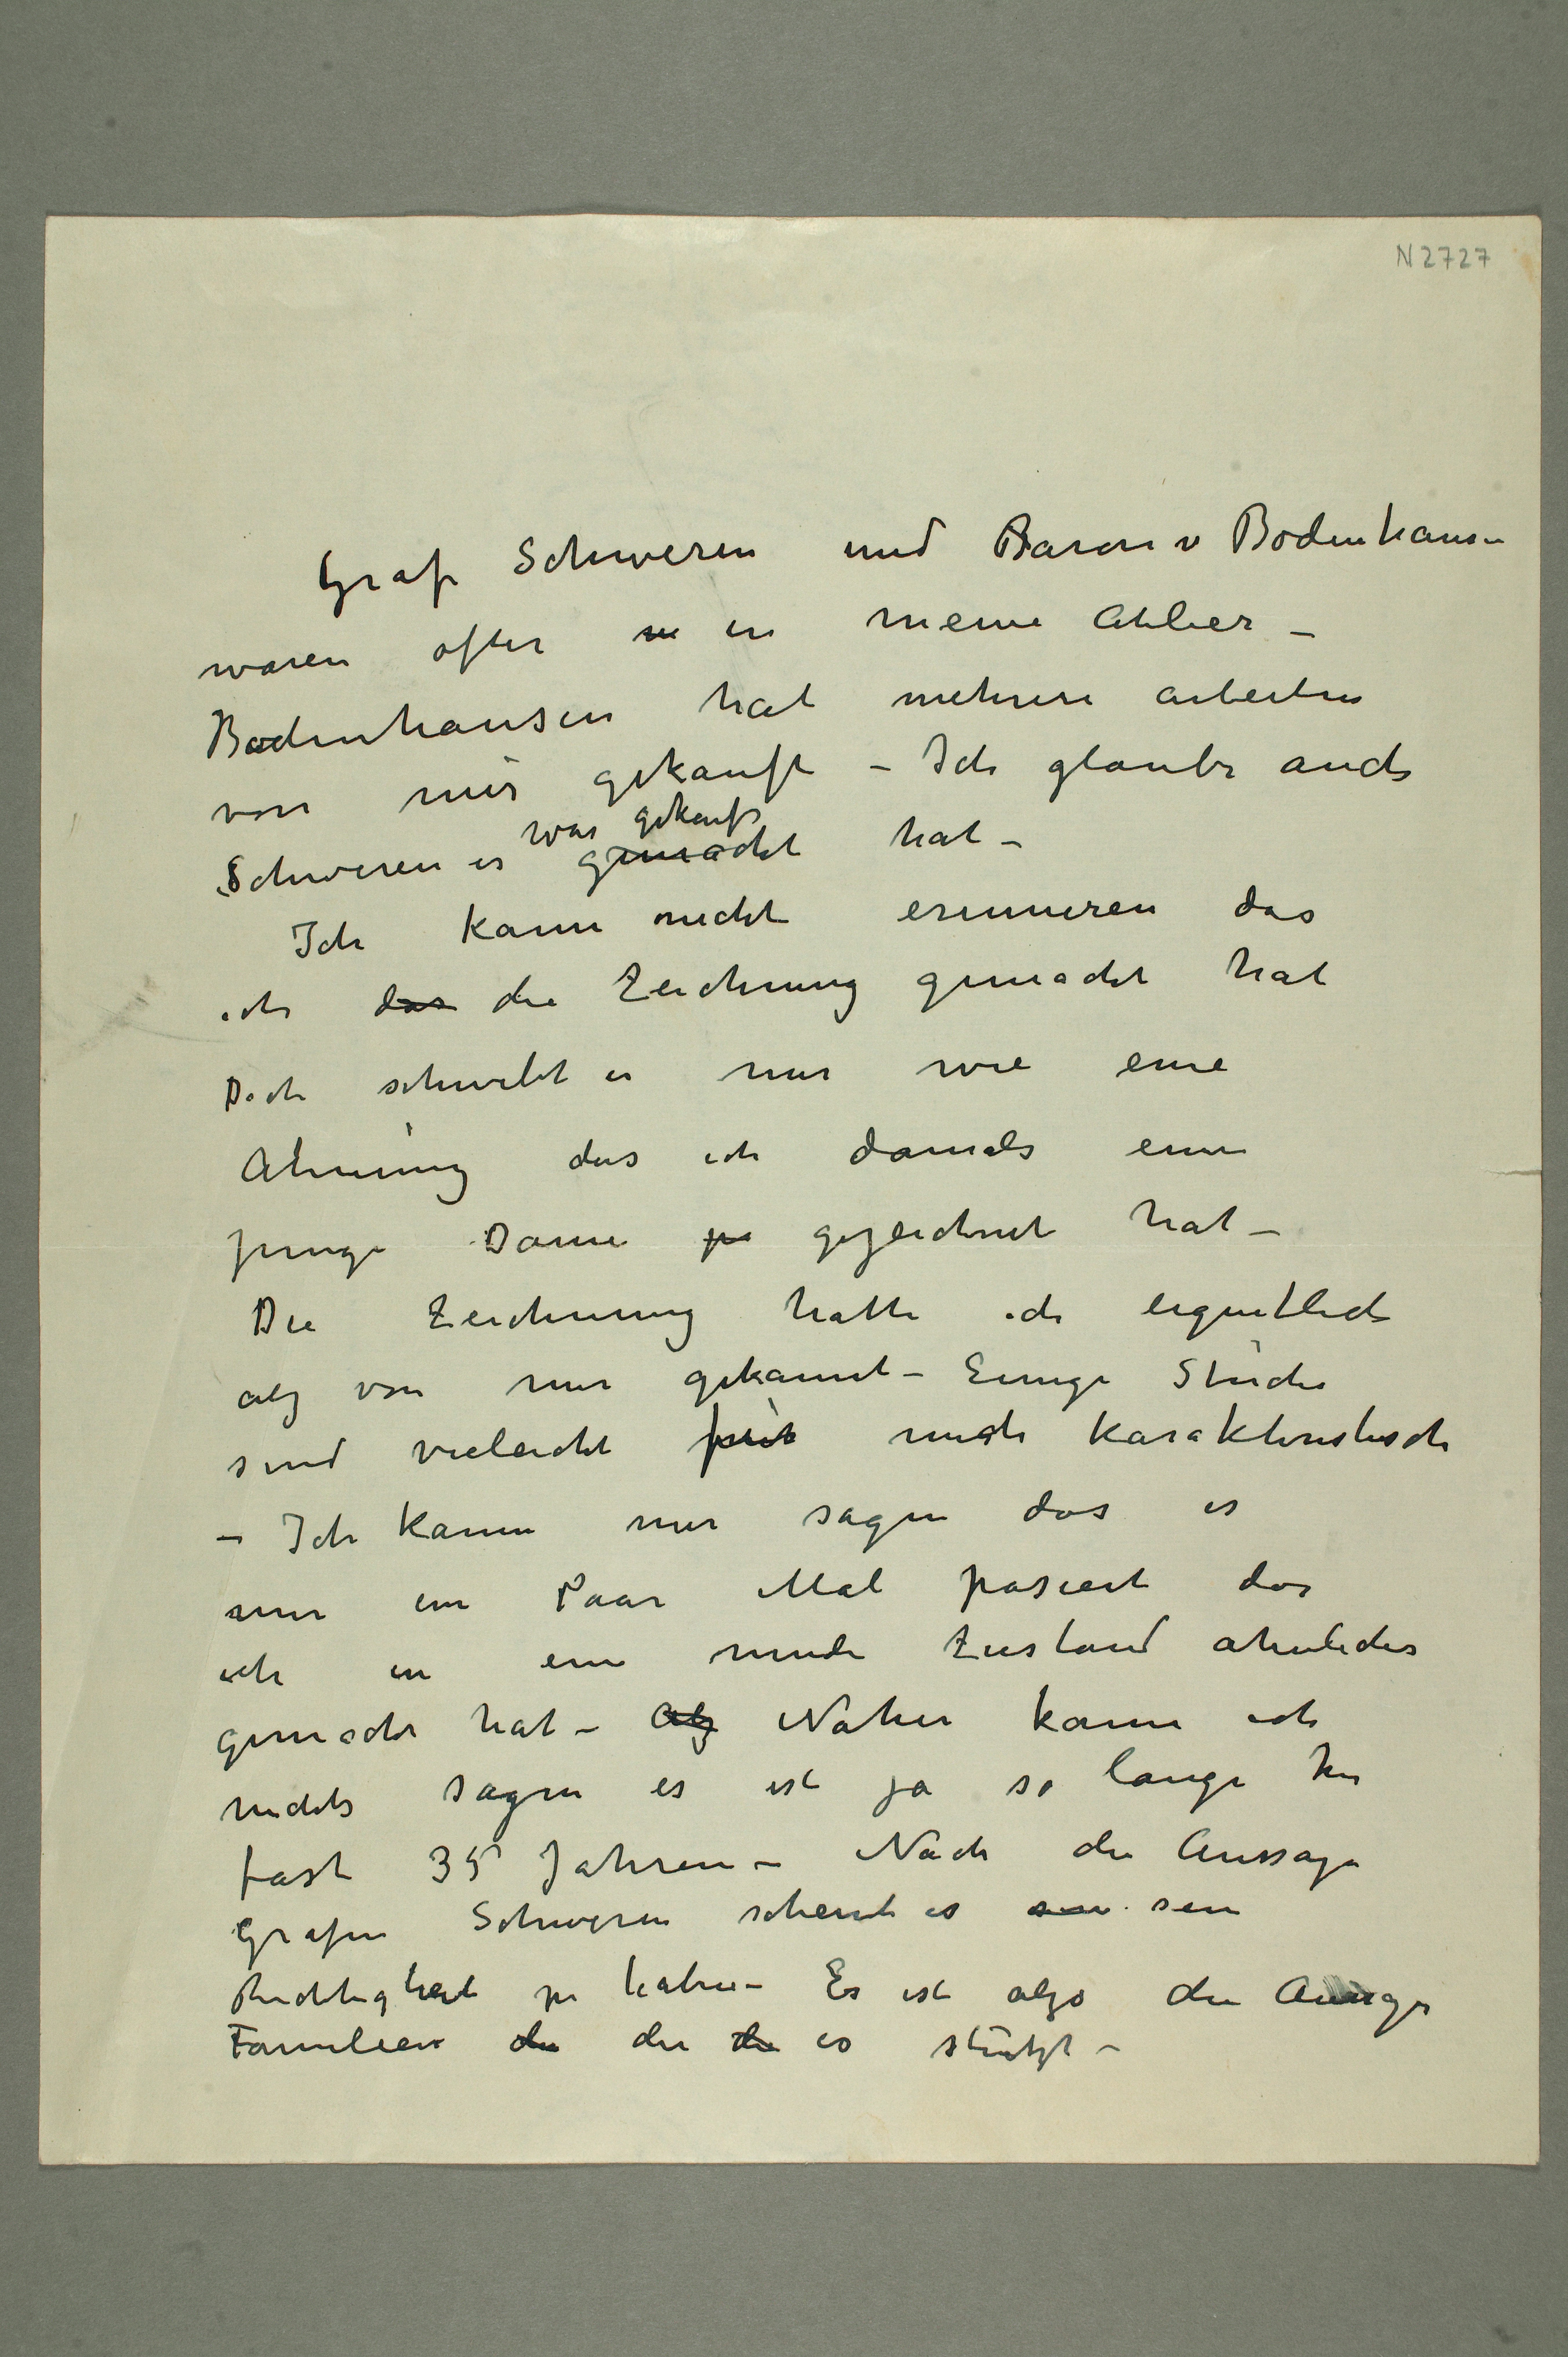 N 2727
Graf Schweren und Baron v Bodenhausen
waren öfter in meine Atelier –
Bodenhausen hat mehrere arbeiten
von mir gekauft – Ich glaube auch
was gekauft
Schweren es gemacht hat –
Ich kann nicht erinneren das
ich das die Zeichnung gemacht hat
Doch schwebt es mir wie eine
Ahnung das ich damals eine
junge Dame zu gezeichnet hat –
Die Zeichnung hatte ich eigentlich
alz von mir gekannt – Einige Striche
sind vieleicht nicht karakteristisch
– Ich kann mir sagen das es
mir ein Paar Mal pasiert das
ich in ein müde Zustand ähnliches
gemacht hat – Alz Näher kann ich
nichts sagen es ist ja so lange her
fast 35 Jahren – Nach die Aussage
Grafen Schweren scheint es sein
Richtigheit zu haben – Es ist alzo die
Familien die die die es stützt –